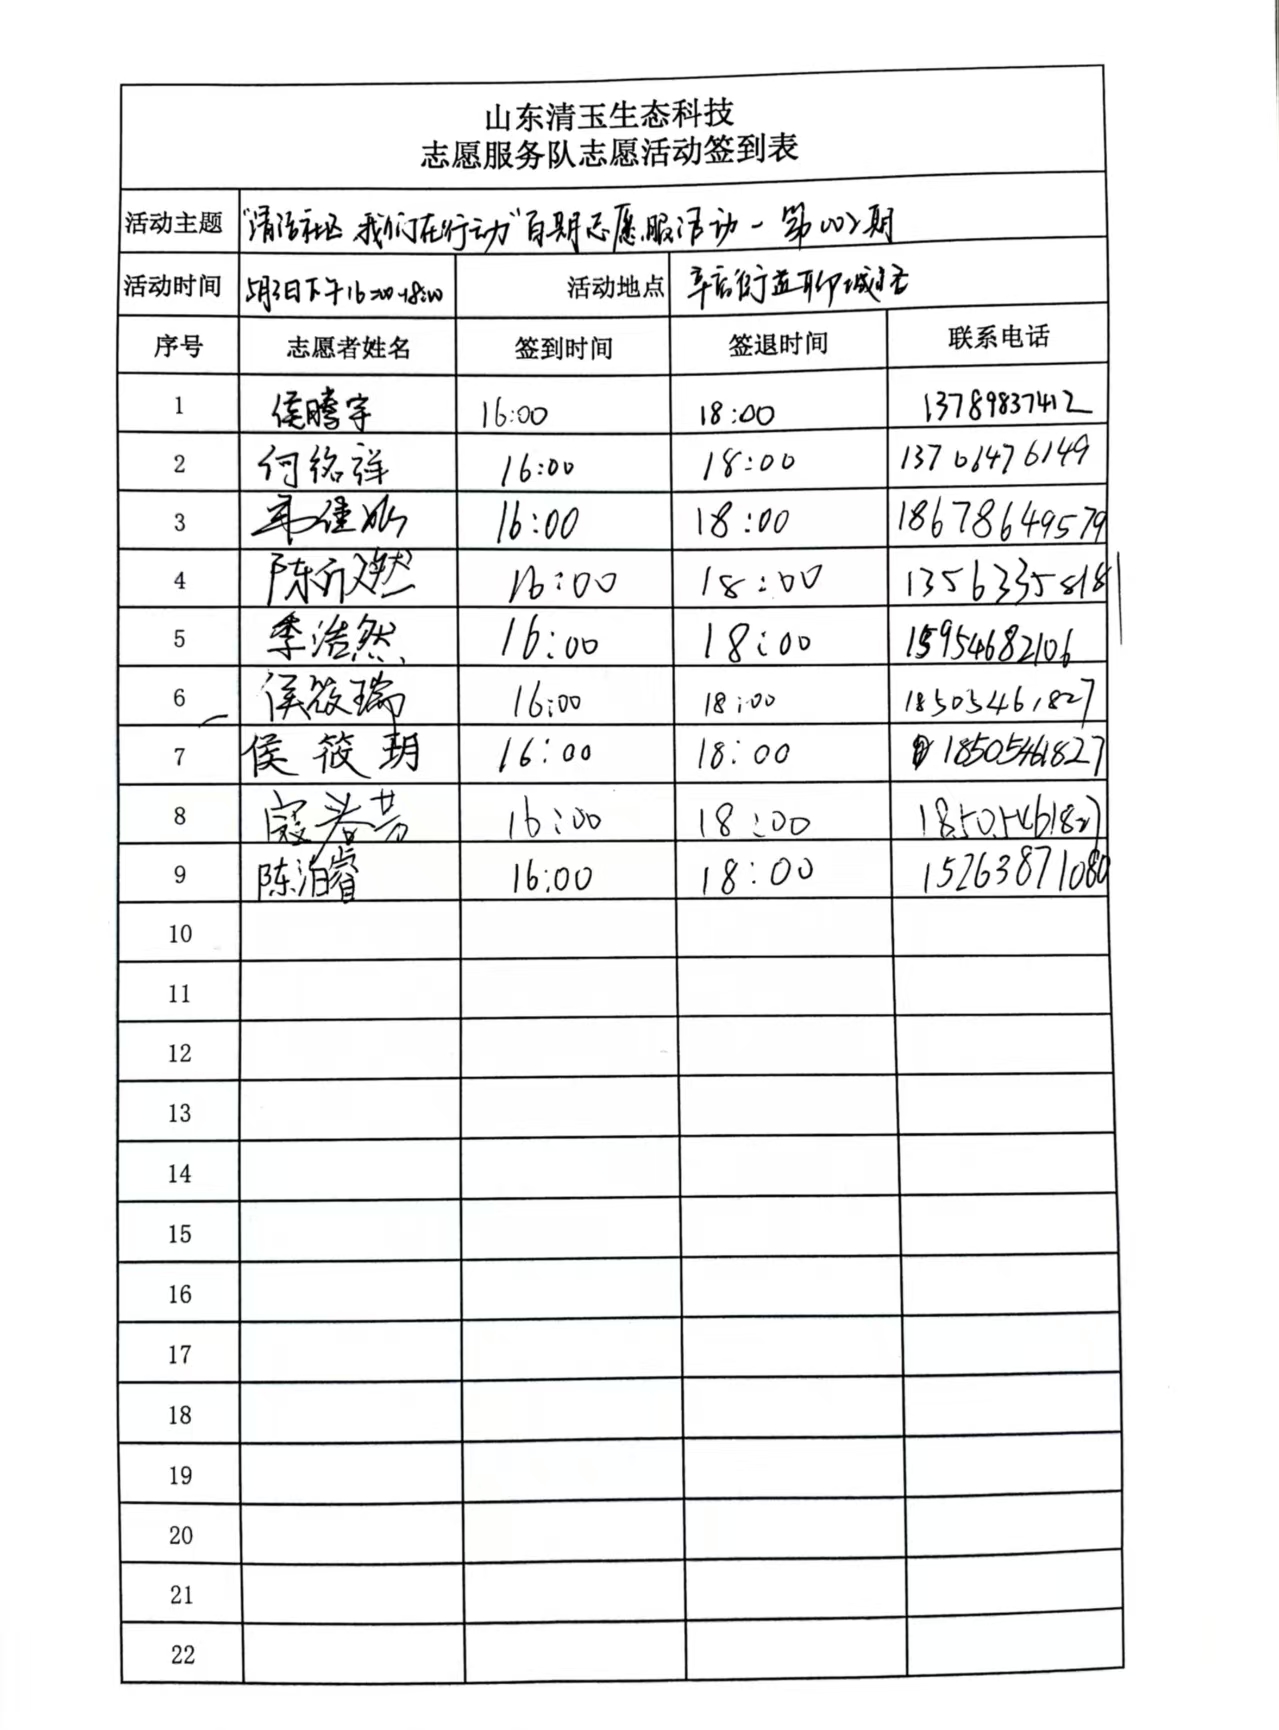 山东清玉生态科技
志愿服务队志愿活动签到表
活动主题 "清洁社区 我们在行动"百期志愿服活动-第002期
活动时间 5月3日下午16:00-18:00 活动地点 辛店街道
序号 志愿者姓名 签到时间 签退时间 联系电话
1 侯腾宇 16:00 18:00 13789837412
2 何铭祥 16:00 18:00 13701476149
3 16:00 18:00 18678649579
4 陈 燃 16:00 18:00 13563358181
5 季浩然 16:00 18:00 15954682106
6 侯筱瑞 16:00 18:00 18505461827
7 侯筱玥 16:00 18:00 18505461827
8 寇春芳 16:00 18:00 18505461827
9 陈泊睿 16:00 18:00 15263871080
10
11
12
13
14
15
16
17
18
19
20
21
22